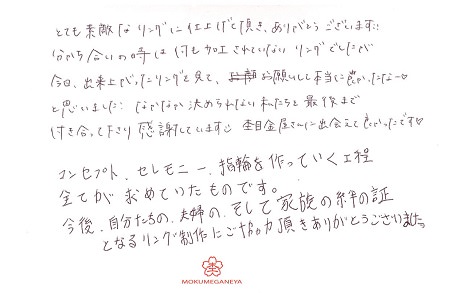 とても素敵なリングに仕上げて頂き、ありがとうございます!!
分かち合いの時は何も加工されていないリングでしたが
今日、出来上がったリングを見て、お願いして本当に良かったなー♡
と思いました! なかなか決められない私たちを最後まで
付き合って下さり感謝しています☺ 杢目金屋さんに出会えて良かったです♡
コンセプト、セレモニー、指輪を作っていく工程
全てが求めていたものです。
今後、自分たちの、夫婦の、そして家族の絆の証
となるリング制作にご協力頂きありがとうございました。
MOKUMEGANEYA